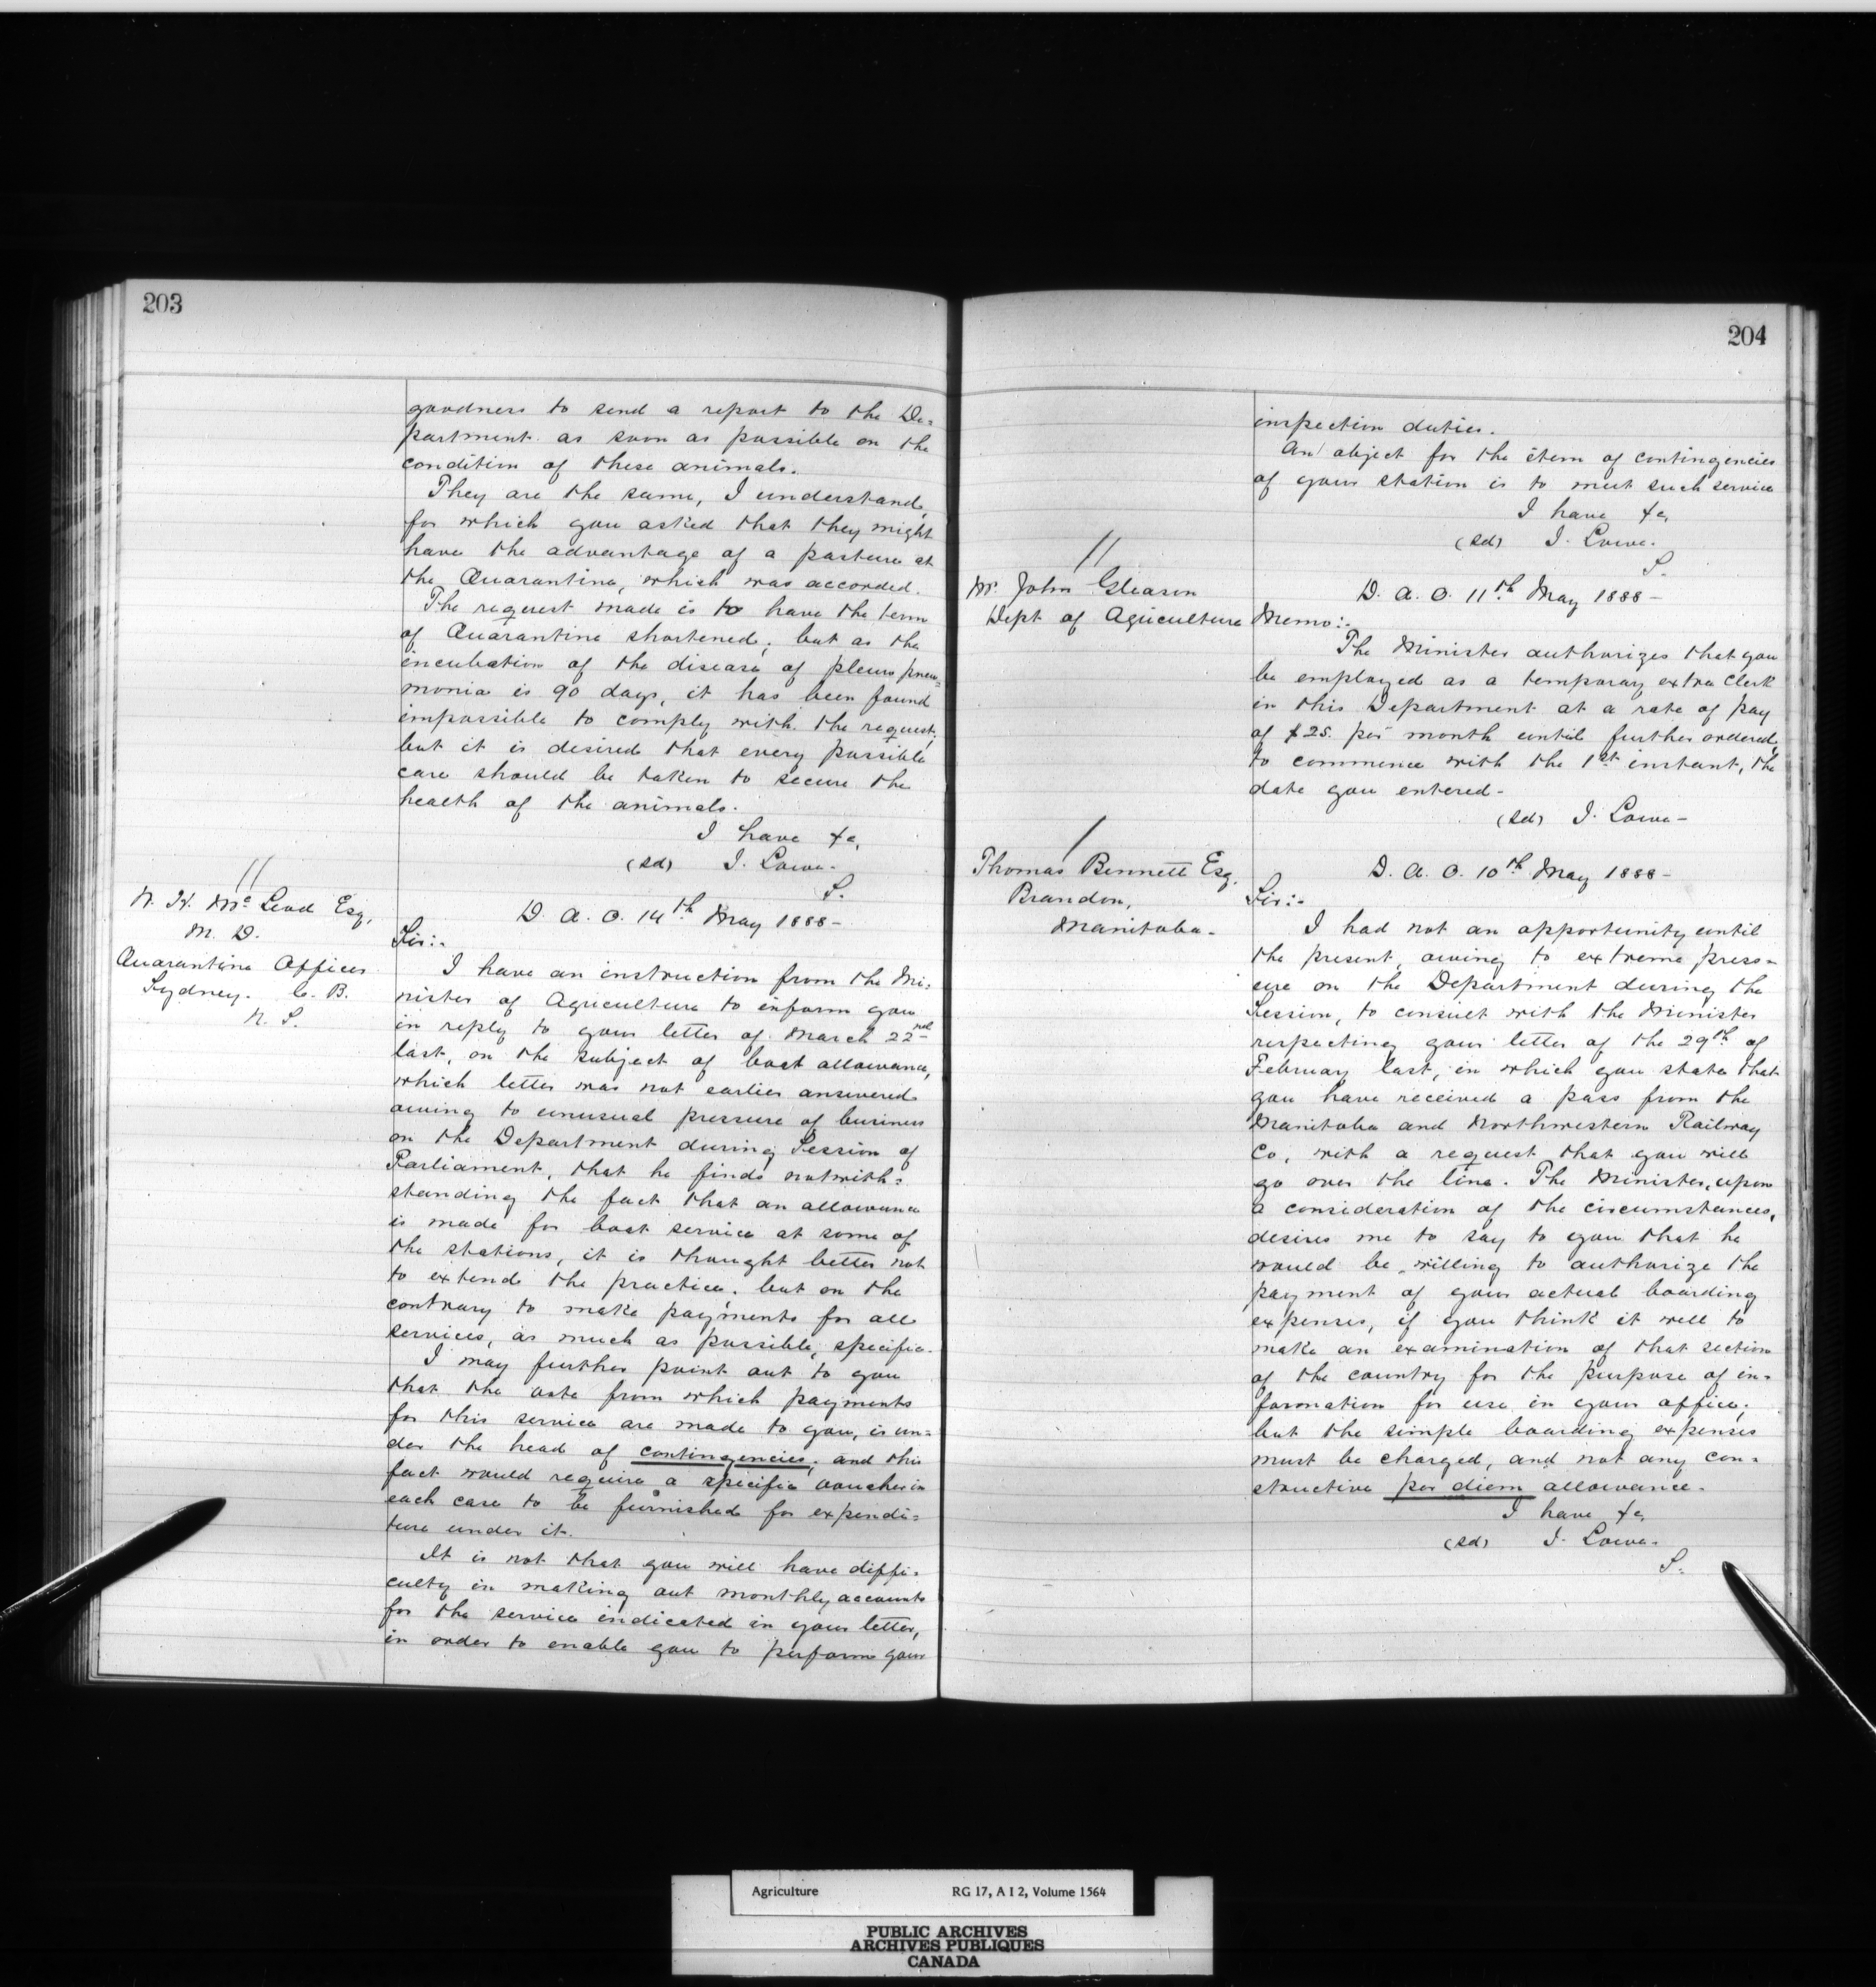 203
goodness to send a report to the De=
partment as soon as possible on the
condition of these animals.
They are the same, I understand,
for which you asked that they might
have the advantage of a pasture at
the Quarantine, which was accorded.
The request made is to have the term
of Quarantine shortened; but as the
incubation of the disease of pleuro pneu=
monia is 90 days, it has been found
impossible to comply with the request;
but it is desired that every possible
care should be taken to secure the
health of the animals.
I have &c,
(Sd) J. Lowe.
S.
//
N. K. McLeod Esq,
M. D.
Quarantine Officer
Sydney. C. B.
N. S.
D. A. O. 14th May 1888-
Sir:-
I have an instruction from the Mi-
nister of Agriculture to inform you
in reply to your letter of March 22nd
last, on the subject of boat allowance,
which letter was not earlier answered
owing to unusual pressure of business
on the Department during Session of
Parliament, that he finds notwith=
standing the fact that an allowance
is made for boat service at some of
the stations, it is thought better not
to extend the practice, but on the
contrary to make payments for all
services, as much as possible, specific.
I may further point out to you
that the vote from which payments
for this service are made to you, is un=
der the head of contingencies, and this
fact would require a specific voucher in
each case to be furnished for expendi=
ture under it.
It is not that you will have diffi-
culty in making out monthly accounts
for the service indicated in your letter,
in order to enable you to perform your
204
inspection duties.
An object for the item of contingencies
of your station is to meet such service
I have &c,
(Sd) J. Lowe.
S.
//
Mr. John Gleason
Dept of Agriculture
D. A. O. 11th May 1888-
Memo:-
The Minister authorizes that you
be employed as a temporary extra Clerk
in this Department at a rate of pay
of $25. per month until further ordered,
to commence with the 1st instant, the
date you entered-
(Sd) J. Lowe-
/
Thomas Bennett Esq.
Brandon,
Manitoba-
D. A. O. 10th May 1888-
Sir:-
I had not an opportunity until
the present, owing to extreme press-
ure on the Department during the
Session, to consult with the Minister
respecting your letter of the 29th of
February last, in which you state that
you have received a pass from the
Manitoba and Northwestern Railway
Co, with a request that you will
go over the line. The Minister, upon
a consideration of the circumstances,
desires me to say to you that he
would be willing to authorize the
payment of your actual boarding
expenses, if you think it well to
make an examination of that section
of the country for the purpose of in-
formation for use in your office;
but the simple boarding expenses
must be charged, and not any con=
structive per diem allowance.
I have &c,
(Sd) J. Lowe.
S.
Agriculture RG 17, A I 2, Volume 1564
PUBLIC ARCHIVES
ARCHIVES PUBLIQUES
CANADA